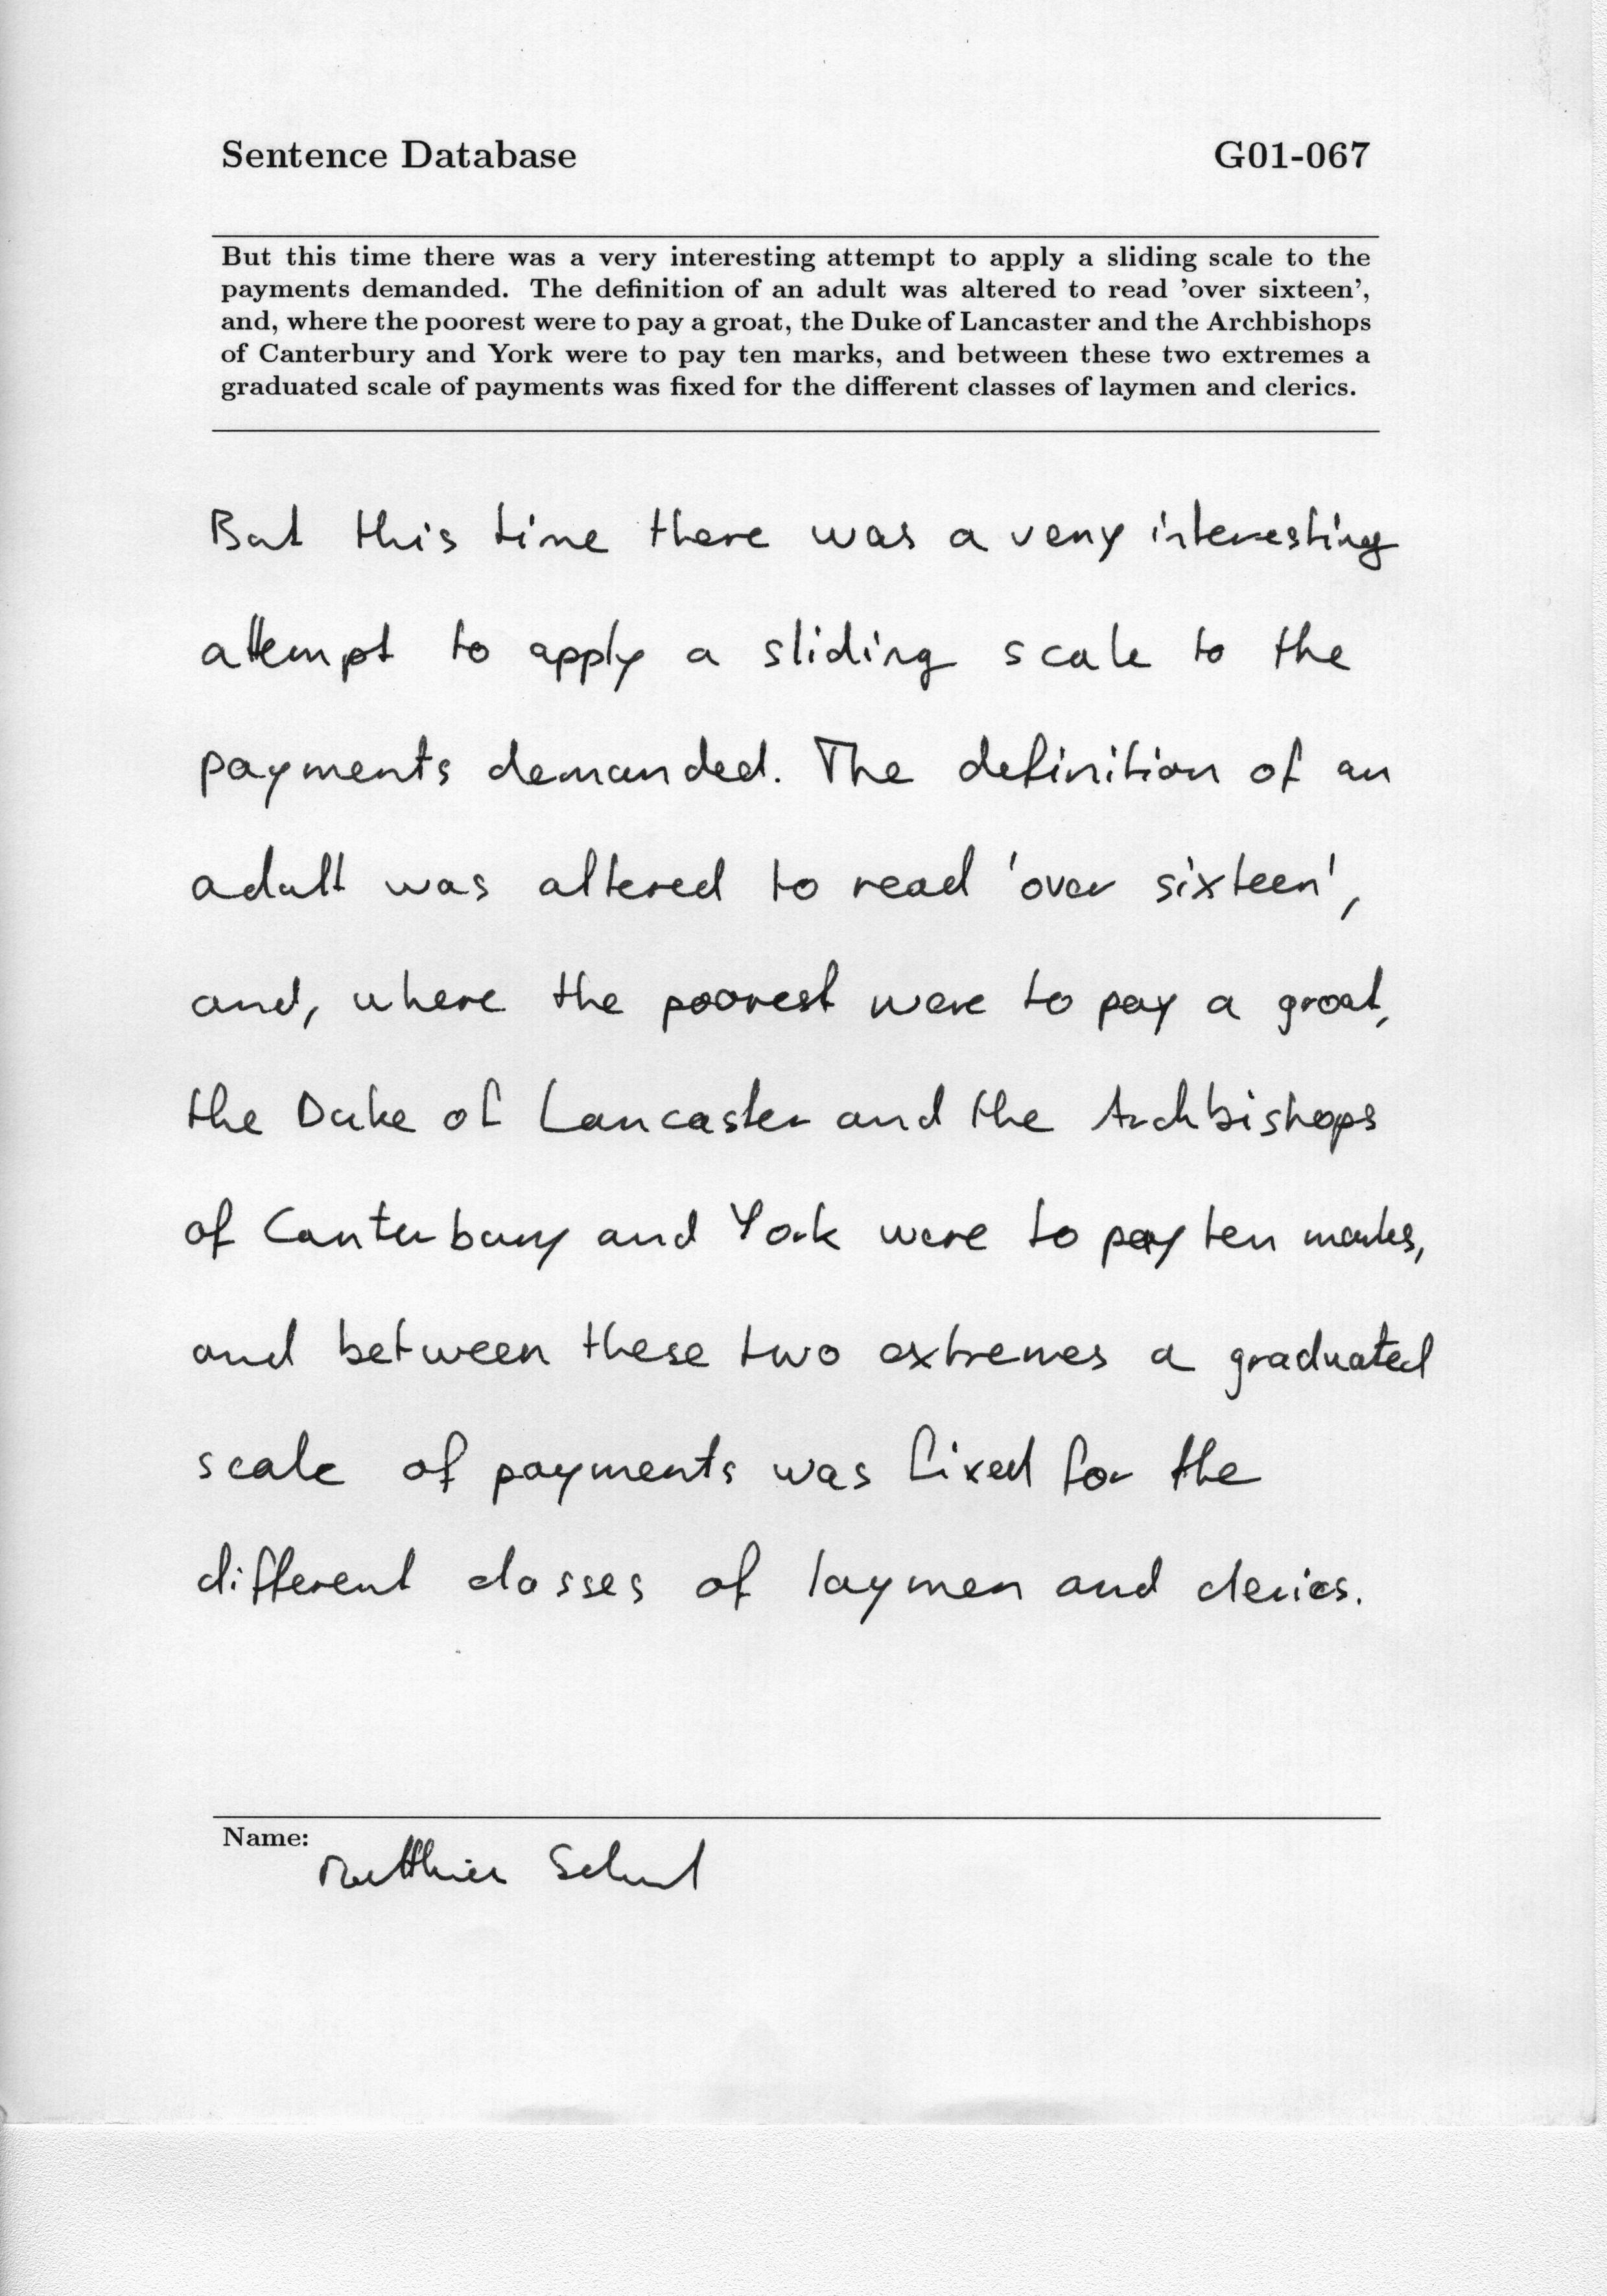 Sentence Database G01-067
But this time there was a very interesting attempt to apply a sliding scale to the
payments demanded. The definition of an adult was altered to read 'over sixteen',
and, where the poorest were to pay a groat, the Duke of Lancaster and the Archbishops
of Canterbury and York were to pay ten marks, and between these two extremes a
graduated scale of payments was fixed for the different classes of laymen and clerics.
But this time there was a very interesting
attempt to apply a sliding scale to the
payments demanded. The definition of an
adult was altered to read 'over sixteen',
and, where the poorest were to pay a groat,
the Duke of Lancaster and the Archbishops
of Canterbury and York were to pay ten marks,
and between these two extremes a graduated
scale of payments was fixed for the
different classes of laymen and clerics.
Name: